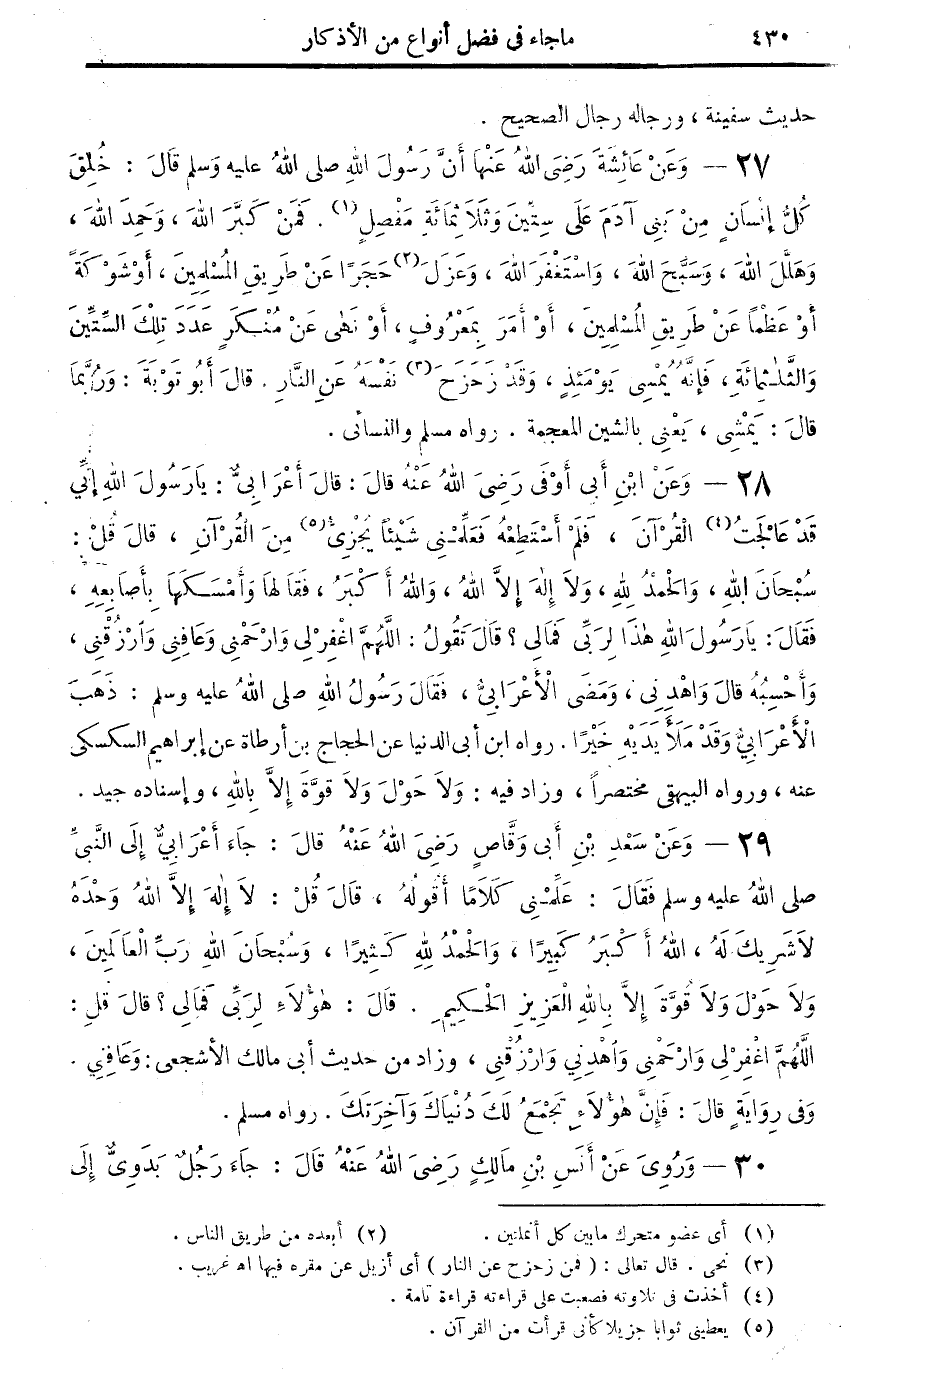 ٤٣٠ ماجاء فى فضل أنواع من الأذكار
حديث سفينة ، ورجاله رجال الصحيح .
٢٧ — وَعَنْ عَائِشَةَ رَضِىَ اللهُ عَنْهَا أَنَّ رَسُولَ اللهِ صلى اللهُ عليه وسلم قَالَ : خُلِقَ
كُلُّ إِنْسَانٍ مِنْ بَنِى آدَمَ عَلَى سِتِّينَ وَثَلَاثِمَائَةِ مَفْصِلٍ (١) . فَمَنْ كَبَّرَ اللهَ ، وَحَمِدَ اللهَ ،
وَهَلَّلَ اللهَ ، وَسَبَّحَ اللهَ ، وَاسْتَغْفَرَ اللهَ ، وَعَزَلَ (٢) حَجَرًا عَنْ طَرِيقِ الْمُسْلِمِينَ ، أَوْ شَوْكَةً
أَوْ عَظْماً عَنْ طَرِيقِ الْمُسْلِمِينَ ، أَوْ أَمَرَ بِمَعْرُوفٍ ، أَوْ نَهَى عَنْ مُنْكَرٍ عَدَدَ تِلْكَ السِّتِّينَ
وَالثَّلَـٰثِمِائَةِ ، فَإِنَّهُ يُمْسِى يَوْمَئِذٍ ، وَقَدْ زَحْزَحَ (٣) نَفْسَهُ عَنِ النَّارِ . قالَ أَبُو تَوْبَةَ : وَرُبَّمَا
قالَ : يَمْشِى ، يَعْنِى بالشين المعجمة . رواه مسلم والنسائى .
٢٨ — وَعَنْ ابْنِ أَبِى أَوْفَى رَضِىَ اللهُ عَنْهُ قالَ : قالَ أَعْرَابِىٌّ : يَارَسُولَ اللهِ إِنِّي
قَدْ عَالَجْتُ (٤) الْقُرْآنَ ، فَلَمْ أَسْتَطِعْهُ فَعَلِّمْنِى شَيْئاً يُجْزِئُ (٥) مِنَ الْقُرْآنِ ، قالَ قُلْ :
سُبْحَانَ اللهِ ، وَالْحَمْدُ لِلهِ ، وَلاَ إِلٰهَ إِلاَّ اللهُ ، وَاللهُ أَكْبَرُ ، فَقَالَهَا وَأَمْسَكَهَا بِأَصَابِعِهِ ،
فَقَالَ : يَارَسُولَ اللهِ هٰذَا لِرَبِّى فَمَالِى ؟ قَالَ تَقُولُ : اللَّهُمَّ اغْفِرْلِى وَارْحَمْنِى وَعَافِنِى وَارْزُقْنِى ،
وَأَحْسِبُهُ قالَ وَاهْدِنِى ، وَمَضَى الْأَعْرَابِيُّ ، فَقَالَ رَسُولُ اللهِ صلى اللهُ عليه وسلم : ذَهَبَ
الْأَعْرَابِيُّ وَقَدْ مَلَأَ يَدَيْهِ خَيْرًا . رواه ابن أبى الدنيا عن الحجاج بن أرطاة عن إبراهيم السكسكى
عنه ، ورواه البيهقى مختصراً ، وزاد فيه : وَلاَ حَوْلَ وَلاَ قوَّةَ إِلاَّ بِاللهِ ، وإسناده جيد .
٢٩ — وَعَنْ سَعْدِ بْنِ أَبِى وَقَّاصٍ رَضِىَ اللهُ عَنْهُ قالَ : جَاءَ أَعْرَابِيٌّ إِلَى النَّبِىِّ
صلى اللهُ عليه وسلم فَقَالَ : عَلِّمْنِى كَلَامًا أَقُولُهُ ، قَالَ قُلْ : لاَ إِلٰهَ إِلاَّ اللهُ وَحْدَهُ
لاَشَرِيكَ لَهُ ، اللهُ أَكْبَرُ كَبِيرًا ، وَالْحَمْدُ لِلهِ كَثِيرًا ، وَسُبْحَانَ اللهِ رَبِّ الْعَالَمِينَ ،
وَلاَ حَوْلَ وَلاَ قُوَّةَ إِلاَّ بِاللهِ الْعَزِيزِ الْحَكِيمِ . قَالَ : هٰؤُلاَءِ لِرَبِّى فَمَالِى ؟ قالَ قُلِ :
اللَّهُمَّ اغْفِرْلِى وَارْحَمْنِى وَاهْدِنِى وَارْزُقْنِى ، وزاد من حديث أبى مالك الأشجعى : وَعَافِنِي .
وَفِى رِوَايَةٍ قالَ : فَإِنَّ هٰؤُلاَءِ تَجْمَعُ لَكَ دُنْيَاكَ وَآخِرَتَكَ . رواه مسلم .
٣٠ — وَرُوِىَ عَنْ أَنَسِ بْنِ مَالِكٍ رَضِىَ اللهُ عَنْهُ قَالَ : جَاءَ رَجُلٌ بَدَوِىٌّ إِلَى
(١) أى عضو متحرك مابين كل أنملتين . (٢) أبعده من طريق الناس .
(٣) نحى . قال تعالى : ( فمن زحزح عن النار ) أى أزيل عن مقره فيها اه غريب .
(٤) أخذت فى تلاوته فصعبت على قراءته قراءة تامة .
(٥) يعطينى ثوابا جزيلا كأنى قرأت من القرآن .